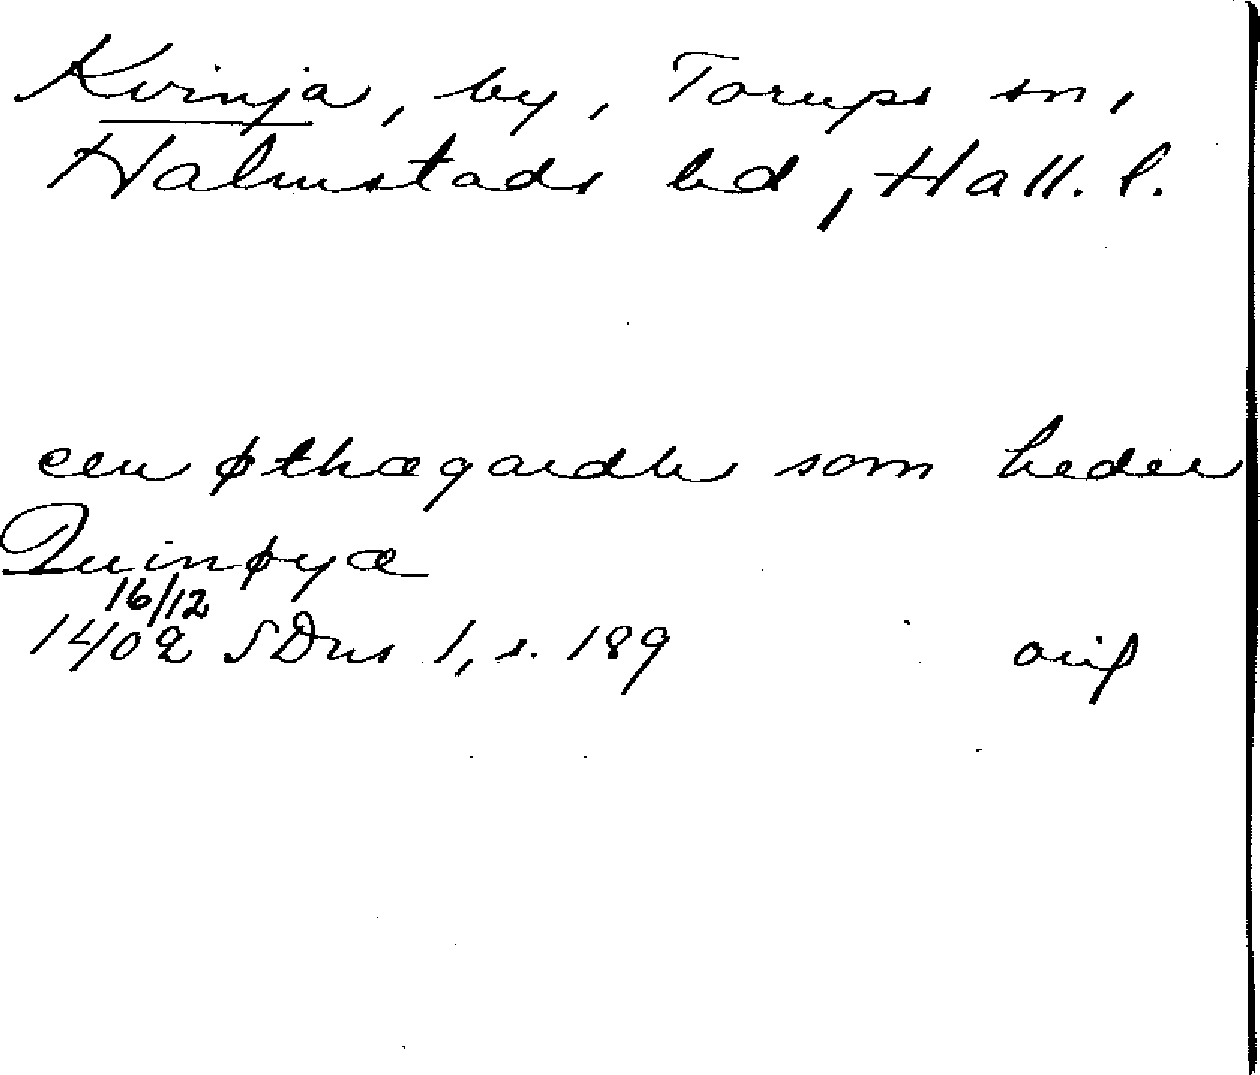 Kvinja, by, Torups sn,
Halmstads hd, Hall. l.
een øthægardh som heder
Quinøyæ
16/12
1402 SDns 1, s. 189 orig